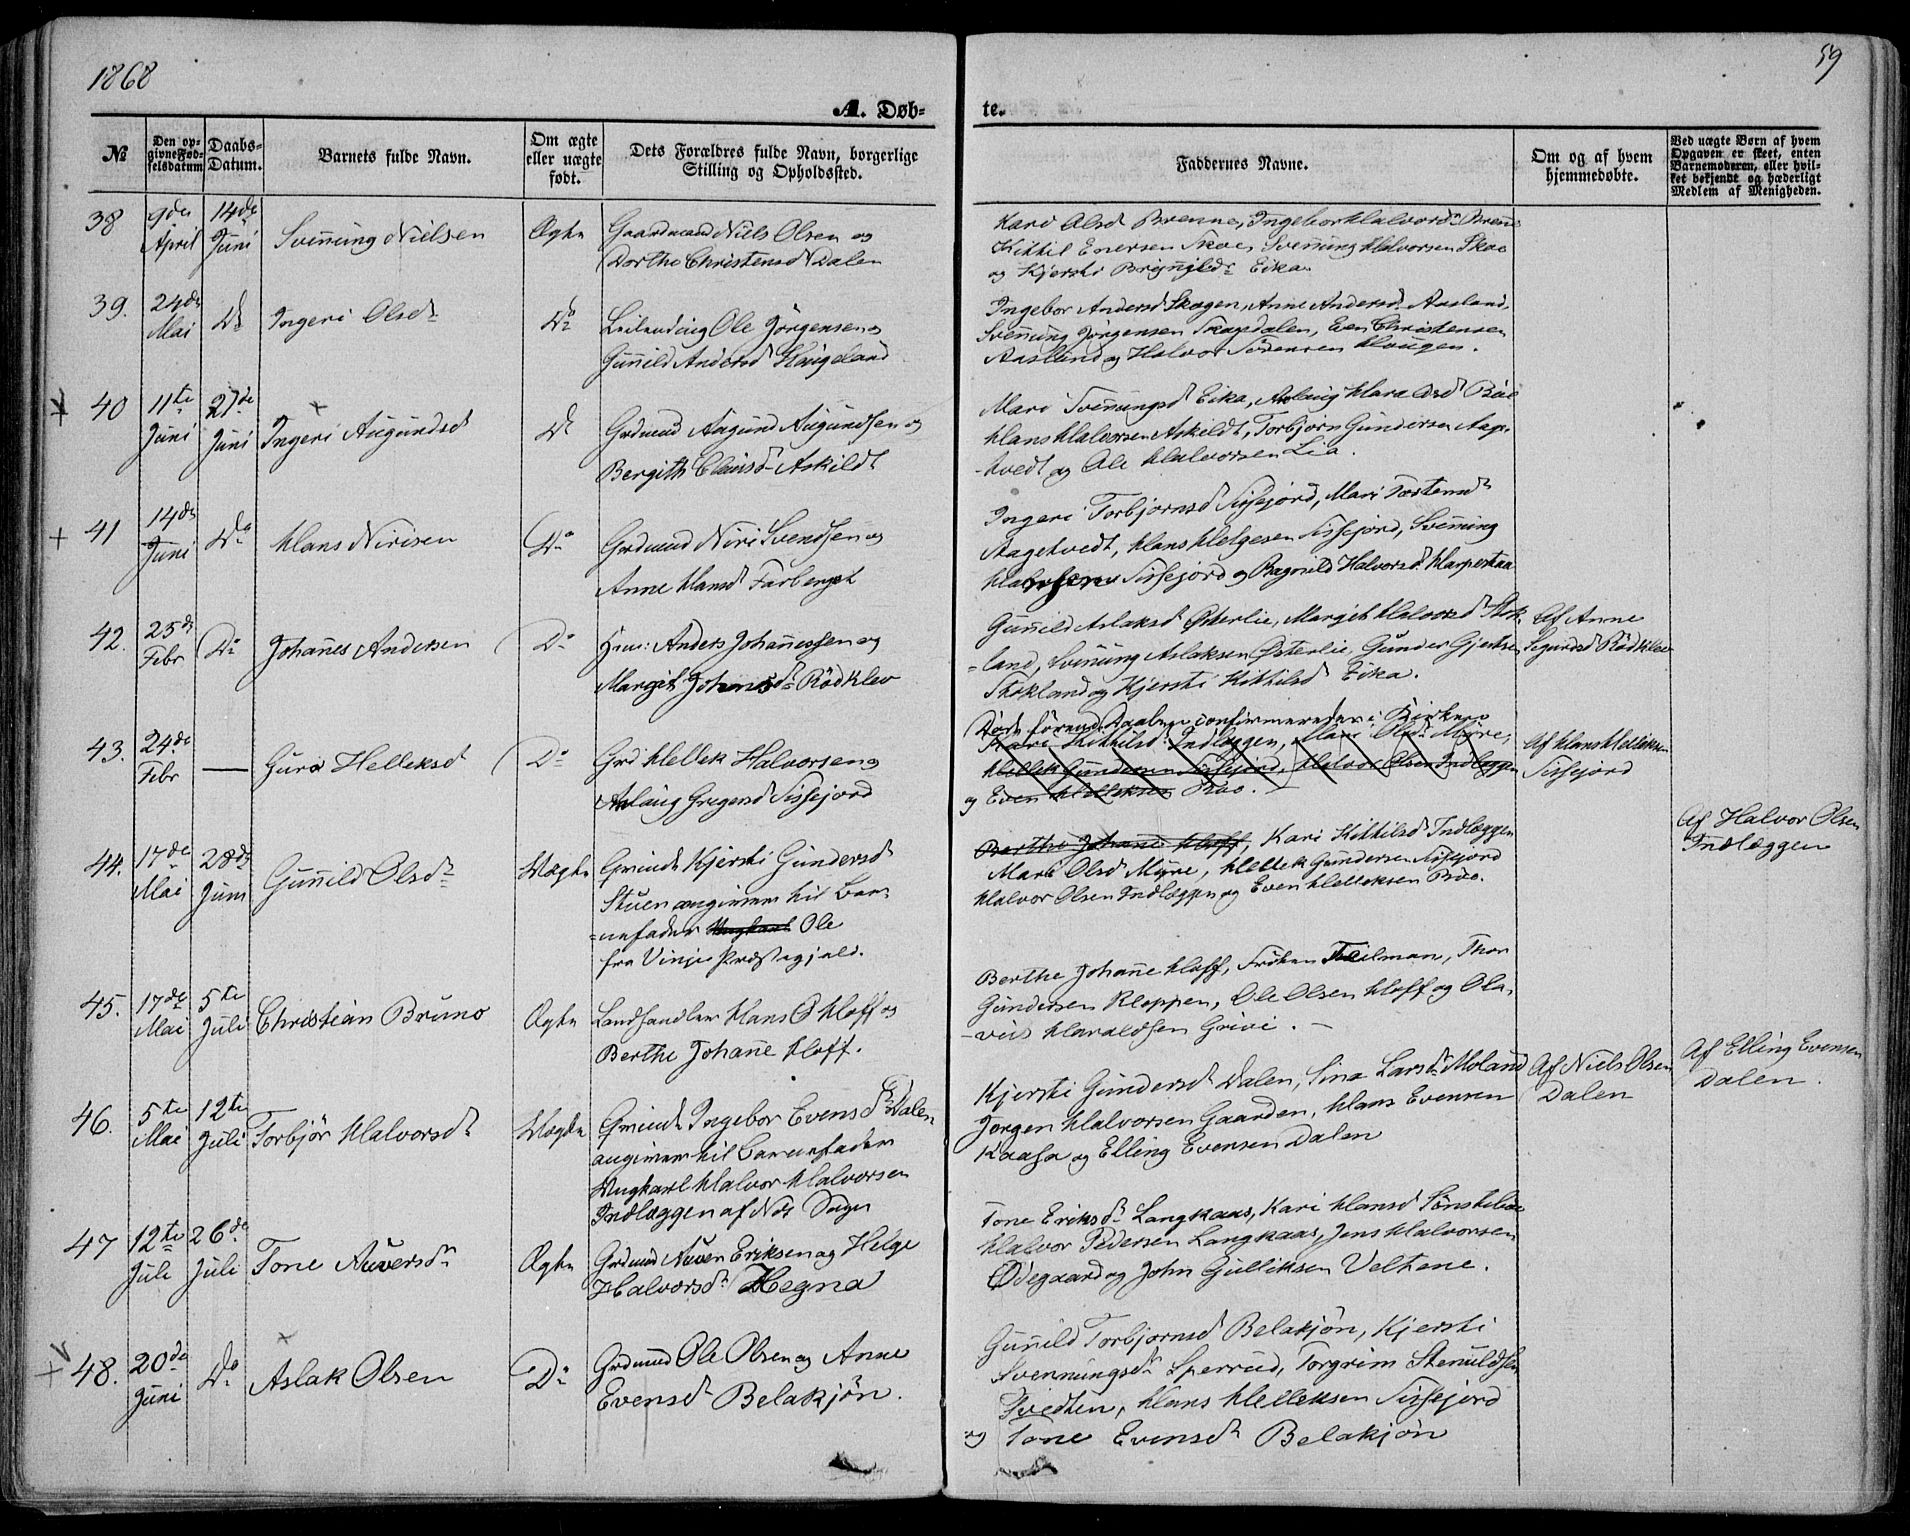 1868
59
A. Døb-
te.
№
Den op-
givne Fød-
selsdatum
Daabs-
Datum.
Barnets fulde Navn.
Om ægte
eller uægte
født.
Dets Forældres fulde Navn, borgerlige
Stilling og Opholdssted.
Faddernes Navne.
Om og af hvem
hjemmedøbte.
Ved uægte Børn af hvem
Opgaven er skeet, enten
Barnemoderen, eller hvil-
ket bekjendt og hæderligt
Medlem af Menigheden.
38
9de
April
14de
Juni
Svenung Nielsen
Ægte
Gaardmand Niels Olsen og
Dorthe Christensd Dalen
Kari Olsd Brenne, Ingebor Halvorsd Brenne
Kittil Enersen Skoe, Svenung Halvorsen Skoe
og Kjersti Brynjelsd Eika
39.
24de
Mai
Do
Ingeri Olsd
Do
Leilending Ole Jörgensen og
Gunild Andersd Haugeland
Ingebor Andersd Skogen, Anne Andersd Aasland,
Svenung Jörgensen Skogsdalen, Even Christensen
Aasland og Halvor Sörensen Haugen.
40
11te
Juni
27de
Juni
Ingeri Augundsd
Do
Grdmnd Augund Augundsen og
Bergith Clausd Askildt
Mari Svenungsd Eika, Aslaug Haraldsd Böe
Hans Halvorsen Askildt, Torbjørn Gundersen Aag-
-tvedt og Ole Halvorsen Lia.
41
14de
Juni
Do
Hans Nirisen
Do
Grdmnd Niri Svendsen og
Anne Hansd Farberget
Ingeri Torbjørnsd Sissejord, Mari Tostensd
Aagetvedt, Hans Helgesen Sissejord, Svenning
Halvorsen Sissejord og Ragnild Halvorsd
42.
25de
Febr
Do
Johanes Andersen
Do
Anders Johannessen og
Margit Johansd Rödklev
Gunild Aslaksd Østerlie, Margit Halvorsd Stok-
=land, Svenung Aslaksen Østerlie, Gunder Gjertsen
Stokland og Kjersti Kittilsd Eika.
Af Anne
Segurdsd Rödklev
43.
24de
Febr
—
Guro Helleksd
Do
Grd Hellek Halvorsen og
Aslaug Gregersd Sissejord
Död förend Daaben confirmeredes i Kirken
Kari Kittilsd Indlæggen, Mari Olsd Myre,
Hellek Gundersen Sissejord, Halvor Olsen Indlæggen
og Even Helleksen Böe.
Af Hans Helleksen
Sissejord
44.
17de
Mai
28de
Juni
Gunild Olsd
Uægte
Qvinde Kjersti Gundersd
Stuen angiver til Bar-
=nefader Ungkarl Ole
fra Vinje Præstegjeld.
Berthe Johane Hoff, Kari Kittilsd Indlæggen
Mari Olsd Myre, Hellek Gundersen Sissejord
Halvor Olsen Indlæggen og Even Helleksen Böe.
Af Halvor Olsen
Indlæggen
45.
17de
Mai
5te
Juli
Christian Bruno
Ægte
Landhandler Hans O Hoff og
Berthe Johane Hoff.
Berthe Johane Hoff, Fröken Teilman, Thor
Gundersen Kleppen, Ole Olsen Hoff og Ola-
-vus Haraldsen Grivi. —
46.
5te
Mai
12te
Juli
Torbjør Halvorsd
Uægte
Qvinde Ingebor Evensd Dalen
angiver til Barnefader
Ungkarl Halvor Halvorsen
Indlæggen af Nes Sogn
Kjersti Gundersd Dalen, Sina Larsd Moland
Jorgen Halvorsen Gaarden, Hans Evensen
Kaasa og Elling Evensen Dalen
Af Niels Olsen
Dalen
Af Elling Evensen
Dalen.
47
12te
Juli
26de
Juli
Tone Auversd
Ægte
Grdmnd Auver Eriksen og Helge
Halvorsd Hegna
Tone Eriksd Langkaas, Kari Hansd
Halvor Pedersen Langkaas, Jens Halvorsen
Ödegaard og John Gulliksen Veltene.
48.
20de
Juni
Do
Aslak Olsen
Do
Grdmnd Ole Olsen og Anne
Evensd Belakjøn.
Gunild Torbjørnsd Belakjøn, Kjersti
Svennungsd Sperrud, Torgrim Stenuldsen
Tvedten, Hans Helleksen Sissejord
og Tone Evensd Belakjøn